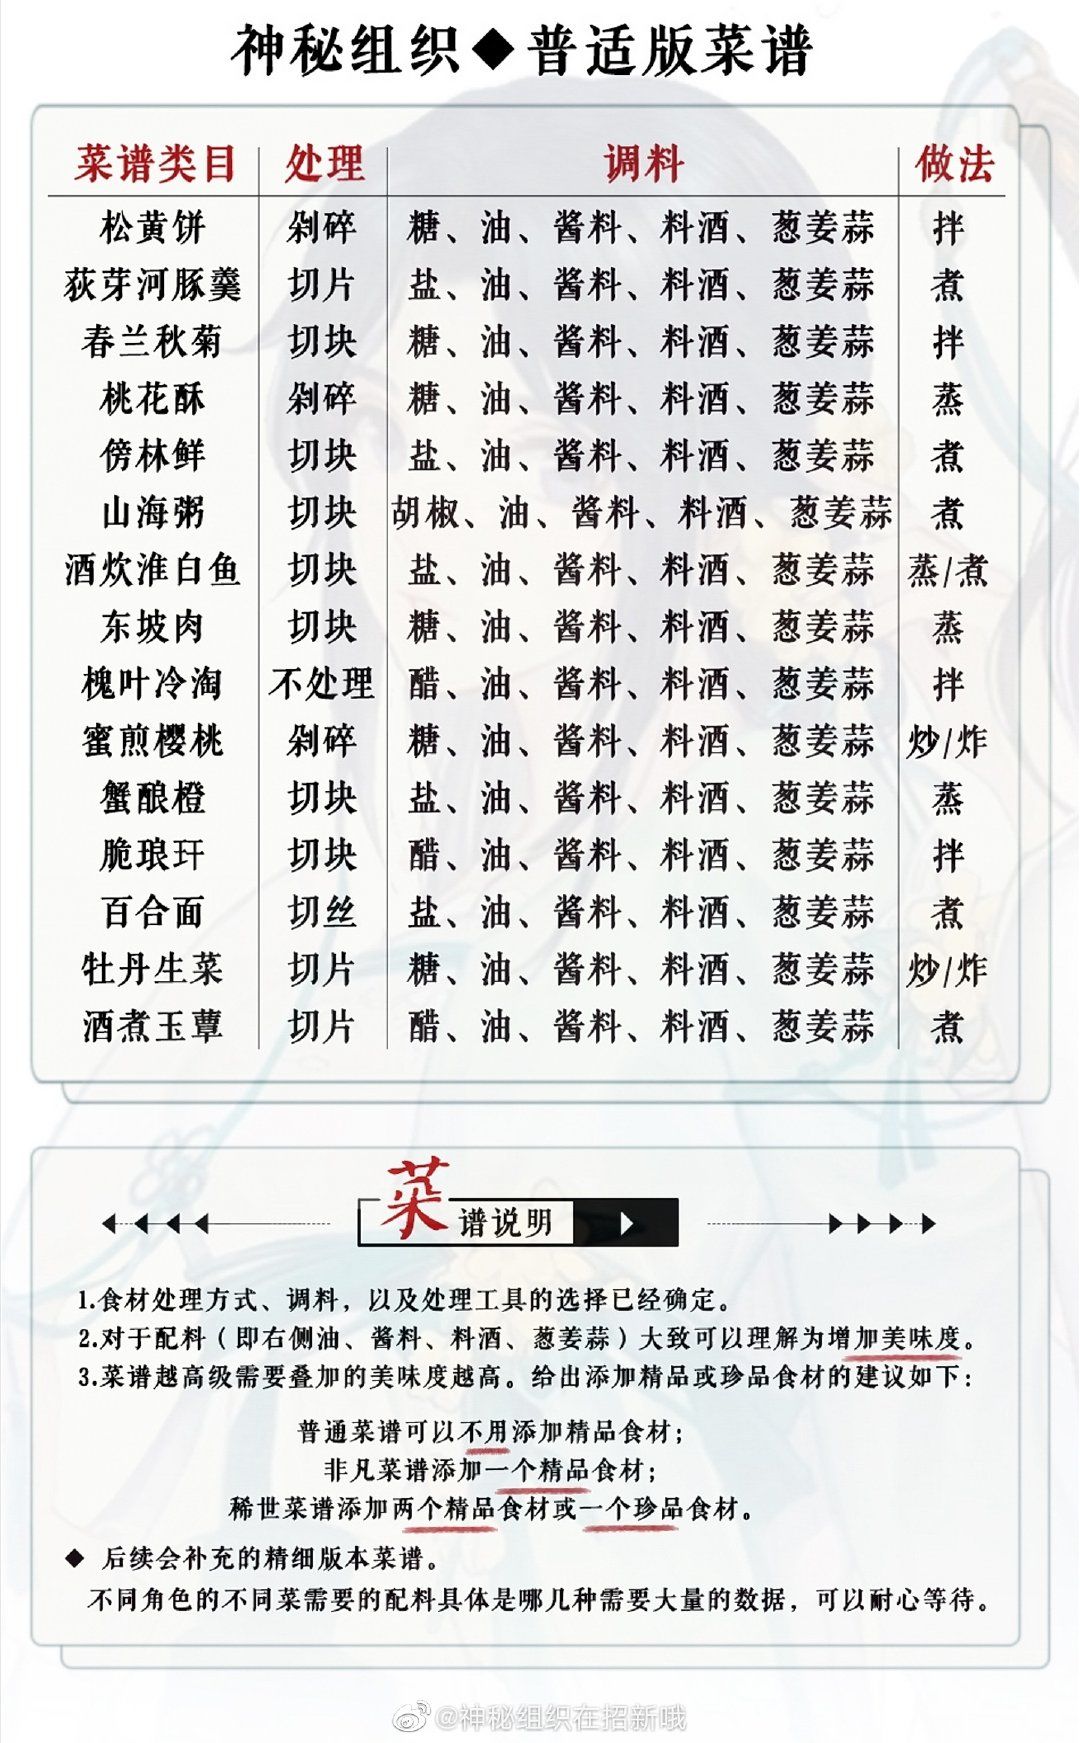 神秘组织◆普适版菜谱
菜谱类目 处理 调料 做法
松黄饼 剁碎 糖、油、酱料、料酒、葱姜蒜 拌
荻芽河豚羹 切片 盐、油、酱料、料酒、葱姜蒜 煮
春兰秋菊 切块 糖、油、酱料、料酒、葱姜蒜 拌
桃花酥 剁碎 糖、油、酱料、料酒、葱姜蒜 蒸
傍林鲜 切块 盐、油、酱料、料酒、葱姜蒜 煮
山海粥 切块 胡椒、油、酱料、料酒、葱姜蒜 煮
酒炊淮白鱼 切块 盐、油、酱料、料酒、葱姜蒜 蒸/煮
东坡肉 切块 糖、油、酱料、料酒、葱姜蒜 蒸
槐叶冷淘 不处理 醋、油、酱料、料酒、葱姜蒜 拌
蜜煎樱桃 剁碎 糖、油、酱料、料酒、葱姜蒜 炒/炸
蟹酿橙 切块 盐、油、酱料、料酒、葱姜蒜 蒸
脆琅玕 切块 醋、油、酱料、料酒、葱姜蒜 拌
百合面 切丝 盐、油、酱料、料酒、葱姜蒜 煮
牡丹生菜 切片 糖、油、酱料、料酒、葱姜蒜 炒/炸
酒煮玉蕈 切片 醋、油、酱料、料酒、葱姜蒜 煮
菜谱说明
1.食材处理方式、调料，以及处理工具的选择已经确定。
2.对于配料（即右侧油、酱料、料酒、葱姜蒜）大致可以理解为增加美味度。
3.菜谱越高级需要叠加的美味度越高。给出添加精品或珍品食材的建议如下：
普通菜谱可以不用添加精品食材；
非凡菜谱添加一个精品食材；
稀世菜谱添加两个精品食材或一个珍品食材。
◆ 后续会补充的精细版本菜谱。
不同角色的不同菜需要的配料具体是哪几种需要大量的数据，可以耐心等待。
@神秘组织在招新哦